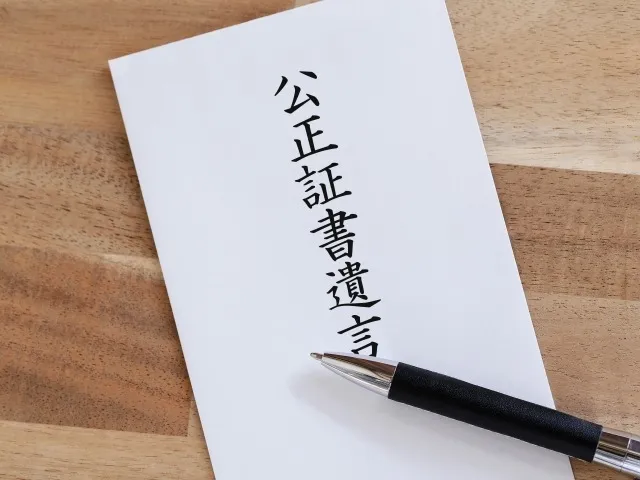 公正証書遺言